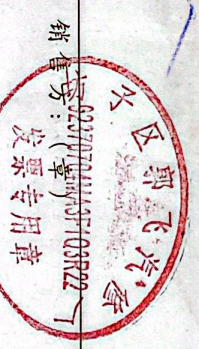 销售方：（章）
子区郭飞汽修厂
发票专用章